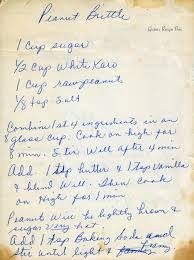 Peanut Brittle
1 Cup sugar
1/2 Cup White Karo
1 Cup raw peanuts
1/8 tsp Salt
Combine 1st 4 ingredients in an
8 glass cup. Cook on high for
8 min. Stir Well after 4 min
Add 1 tsp butter & 1 tsp Vanilla
& blend Well. Then Cook
on High for 1 min
Peanuts Will be lightly brown &
sugar very hot.
Add 1 tsp Baking Soda and
stir until light & foamy.